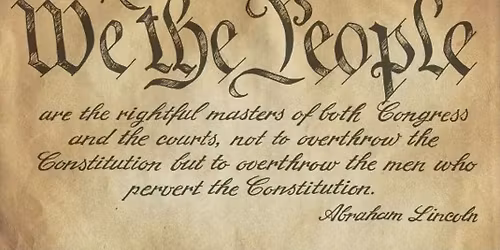 We the People
are the rightful masters of both Congress
and the courts, not to overthrow the
Constitution but to overthrow the men who
pervert the Constitution.
Abraham Lincoln